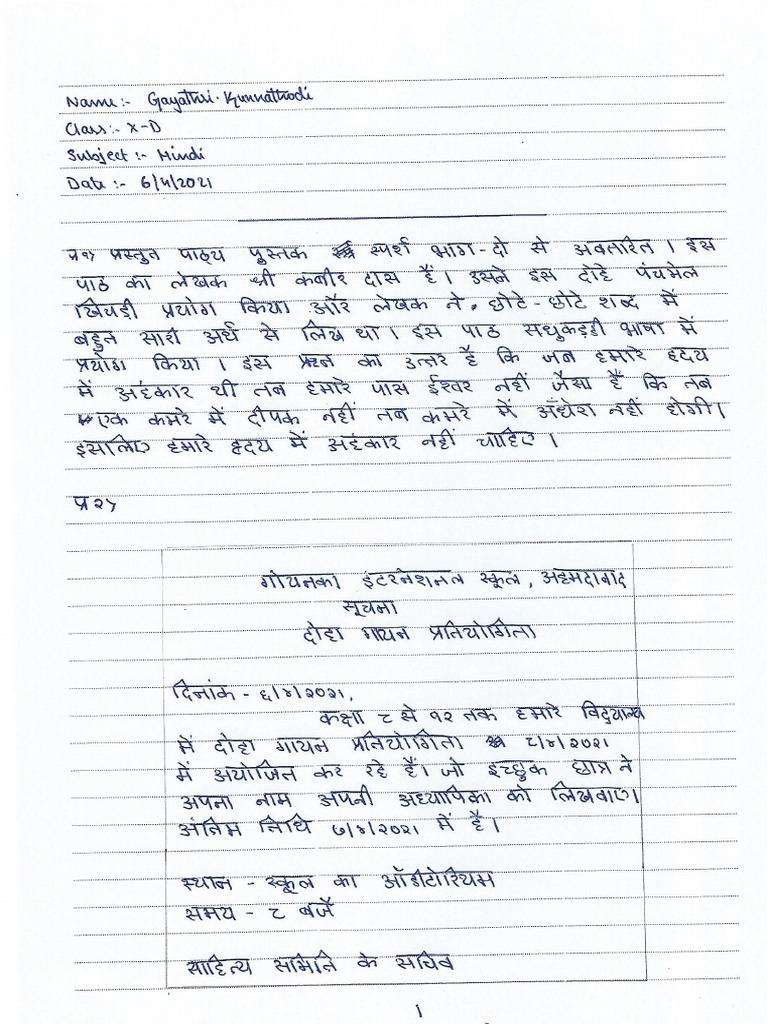 Name:- Gayathri. Kunnathodi
Class:- X-D
Subject:- Hindi
Date:- 6/4/2021
प्र१> प्रस्तुत पाठ्य पुस्तक स्पर्श भाग-दो से अवतारित । इस
पाठ का लेखक श्री कबीर दास हैं। उसने इस दोहे पंचमेल
खिचड़ी प्रयोग किया और लेखक ने छोटे-छोटे शब्द में
बहुत सारी अर्थ से लिख था। इस पाठ सधुकड्डी भाषा में
प्रयोग किया । इस प्रश्न का उत्तर है कि जब हमारे ह्रदय
में अहंकार थी तब हमारे पास ईश्वर नहीं जैसा है कि तब
एक कमरे में दीपक नहीं तब कमरे में अँधेरा नहीं होगी।
इसलिए हमारे ह्रदय में अहंकार नहीं चाहिए ।
प्र२>
गोयनका इंटरनेशनल स्कूल, अहमदाबाद
सूचना
दोहा गायन प्रतियोगिता
दिनांक - ६/४/२०२१,
कक्षा ८ से १२ तक हमारे विद्यालय
में दोहा गायन प्रतियोगिता ८/४/२०२१
में अयोजित कर रहे हैं। जो इच्छुक छात्र ने
अपना नाम अपनी अध्यापिका को लिखवाए।
अंतिम तिथि ७/४/२०२१ में है।
स्थान - स्कूल का ऑडीटोरियम
समय - ८ बजे
साहित्य समिति के सचिव
1